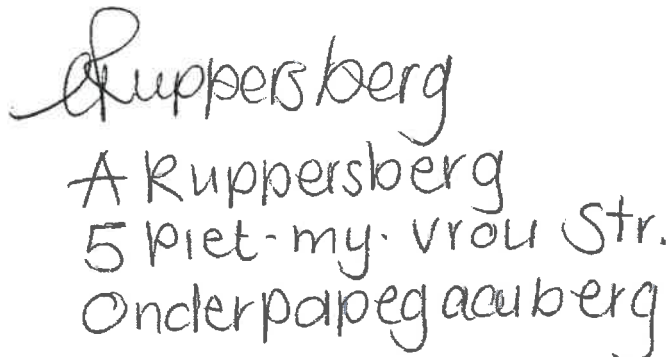 ARuppersberg
A Ruppersberg
5 Piet-my-vrou Str.
Onderpapegaauberg